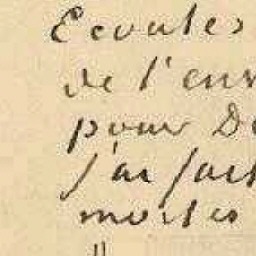 Ecoutez
de l'env
pour De
j'ai fait
mortes